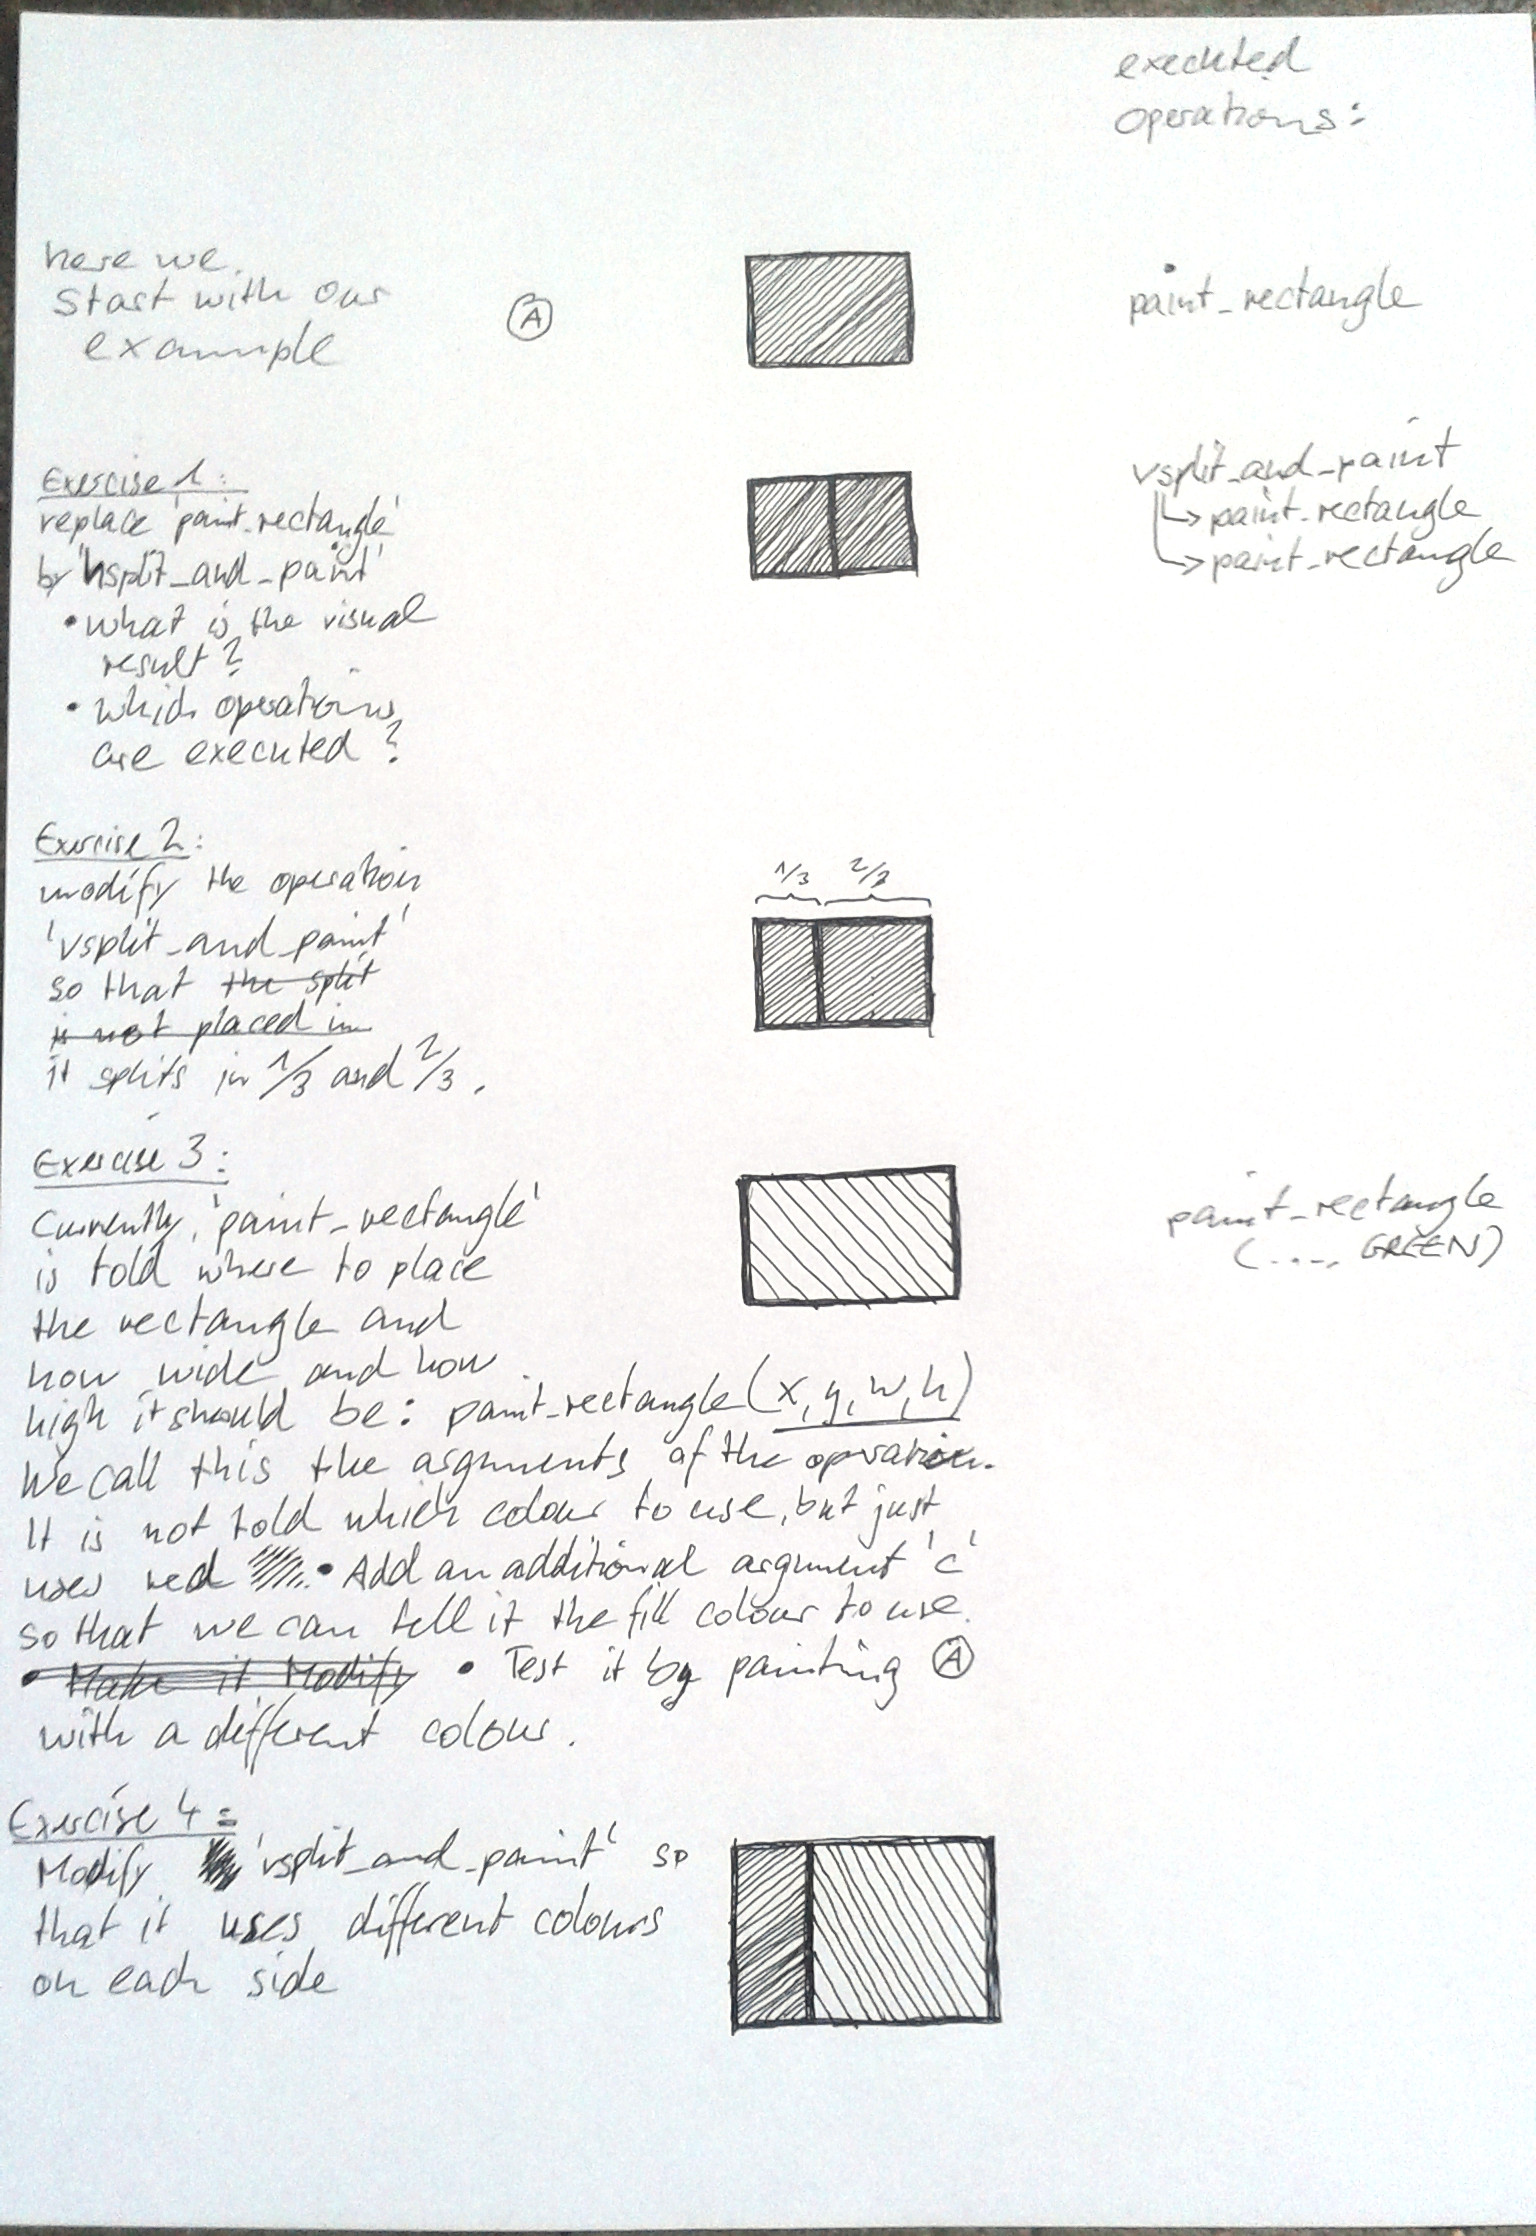 executed
operations:
here we
start with our
example
A
paint_rectangle
Exercise 1:
replace 'paint_rectangle'
by 'hsplit_and_paint'
• what is the visual
result?
• which operations
are executed?
vsplit_and_paint
↳ paint_rectangle
↳ paint_rectangle
Exercise 2:
modify the operation
'vsplit_and_paint'
so that the split
is not placed in
it splits in 1/3 and 2/3.
1/3 2/3
Exercise 3:
Currently, 'paint_rectangle'
is told where to place
the rectangle and
how wide and how
high it should be: paint_rectangle(x, y, w, h)
We call this the arguments of the operation.
It is not told which colour to use, but just
uses red • Add an additional argument 'c'
so that we can tell it the fill colour to use.
• Make it Modify • Test it by painting A
with a different colour.
paint_rectangle
(...., GREEN)
Exercise 4:
Modify 'vsplit_and_paint' so
that it uses different colours
on each side